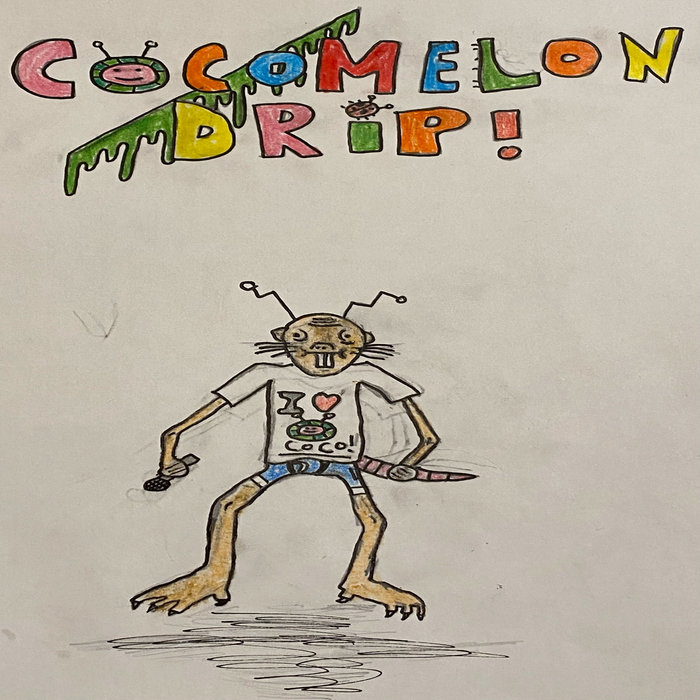 COCOMELON
DRIP!
I
COCO!